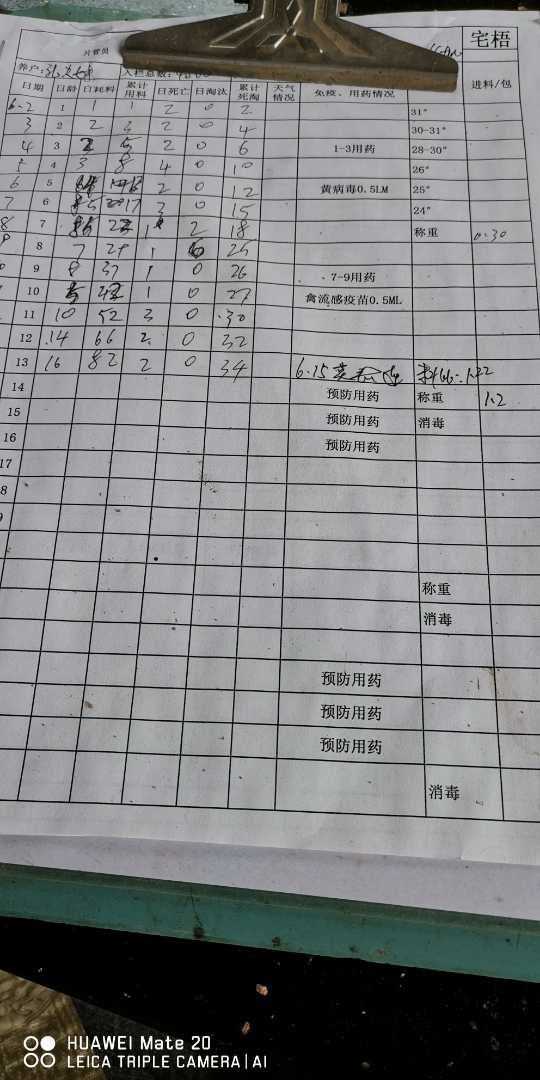 宅梧
片管员
养户: 入栏总数:
日期 日龄 日耗料 累计用料 日死亡 日淘汰 累计死淘 天气情况 免疫、用药情况 进料/包
6-2 1 1 1 2 0 2 31°
3 2 2 3 2 0 4 30-31°
4 3 2 5 2 0 6 1-3用药 28-30°
5 4 3 8 4 0 10 26°
6 5 2 0 12 黄病毒0.5LM 25°
7 6 3 0 15 24°
8 7 1 2 18 称重 0.30
8 7 29 1 6 25
9 8 37 1 0 26 7-9用药
10 5 42 1 0 27 禽流感疫苗0.5ML
11 10 52 3 0 30
12 14 66 2 0 32
13 16 82 2 0 34 6.15 1.22
14 预防用药 称重 1.2
15 预防用药 消毒
16 预防用药
17
8
称重
消毒
预防用药
预防用药
预防用药
消毒
HUAWEI Mate 20
LEICA TRIPLE CAMERA | AI